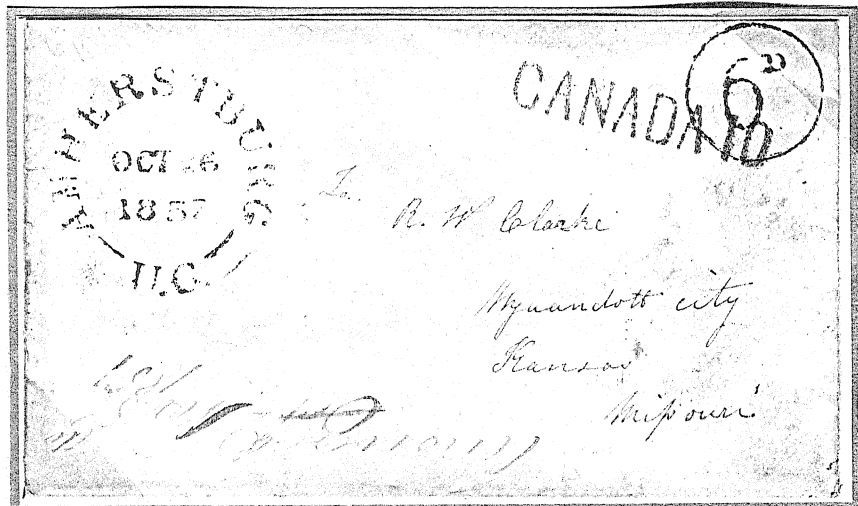 AMHERSTBURG
OCT 26
1857
U.C.
CANADA 10
6D
To
R. W Clarke
Wyuandott city
Kansas
Missouri